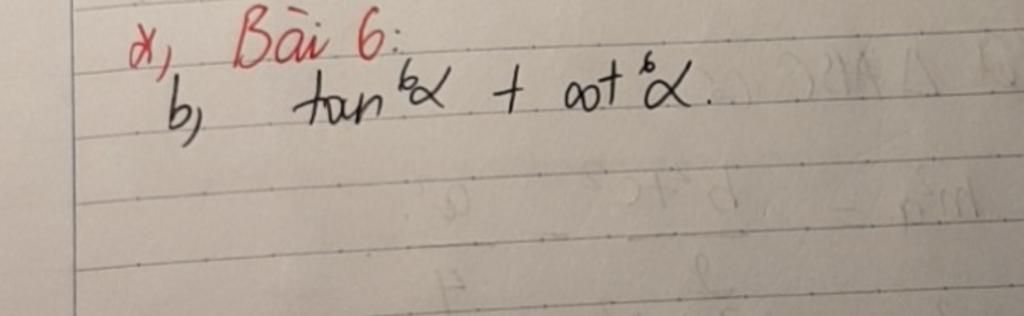 α, Bài 6:
b, tan⁶α + cot⁶α.